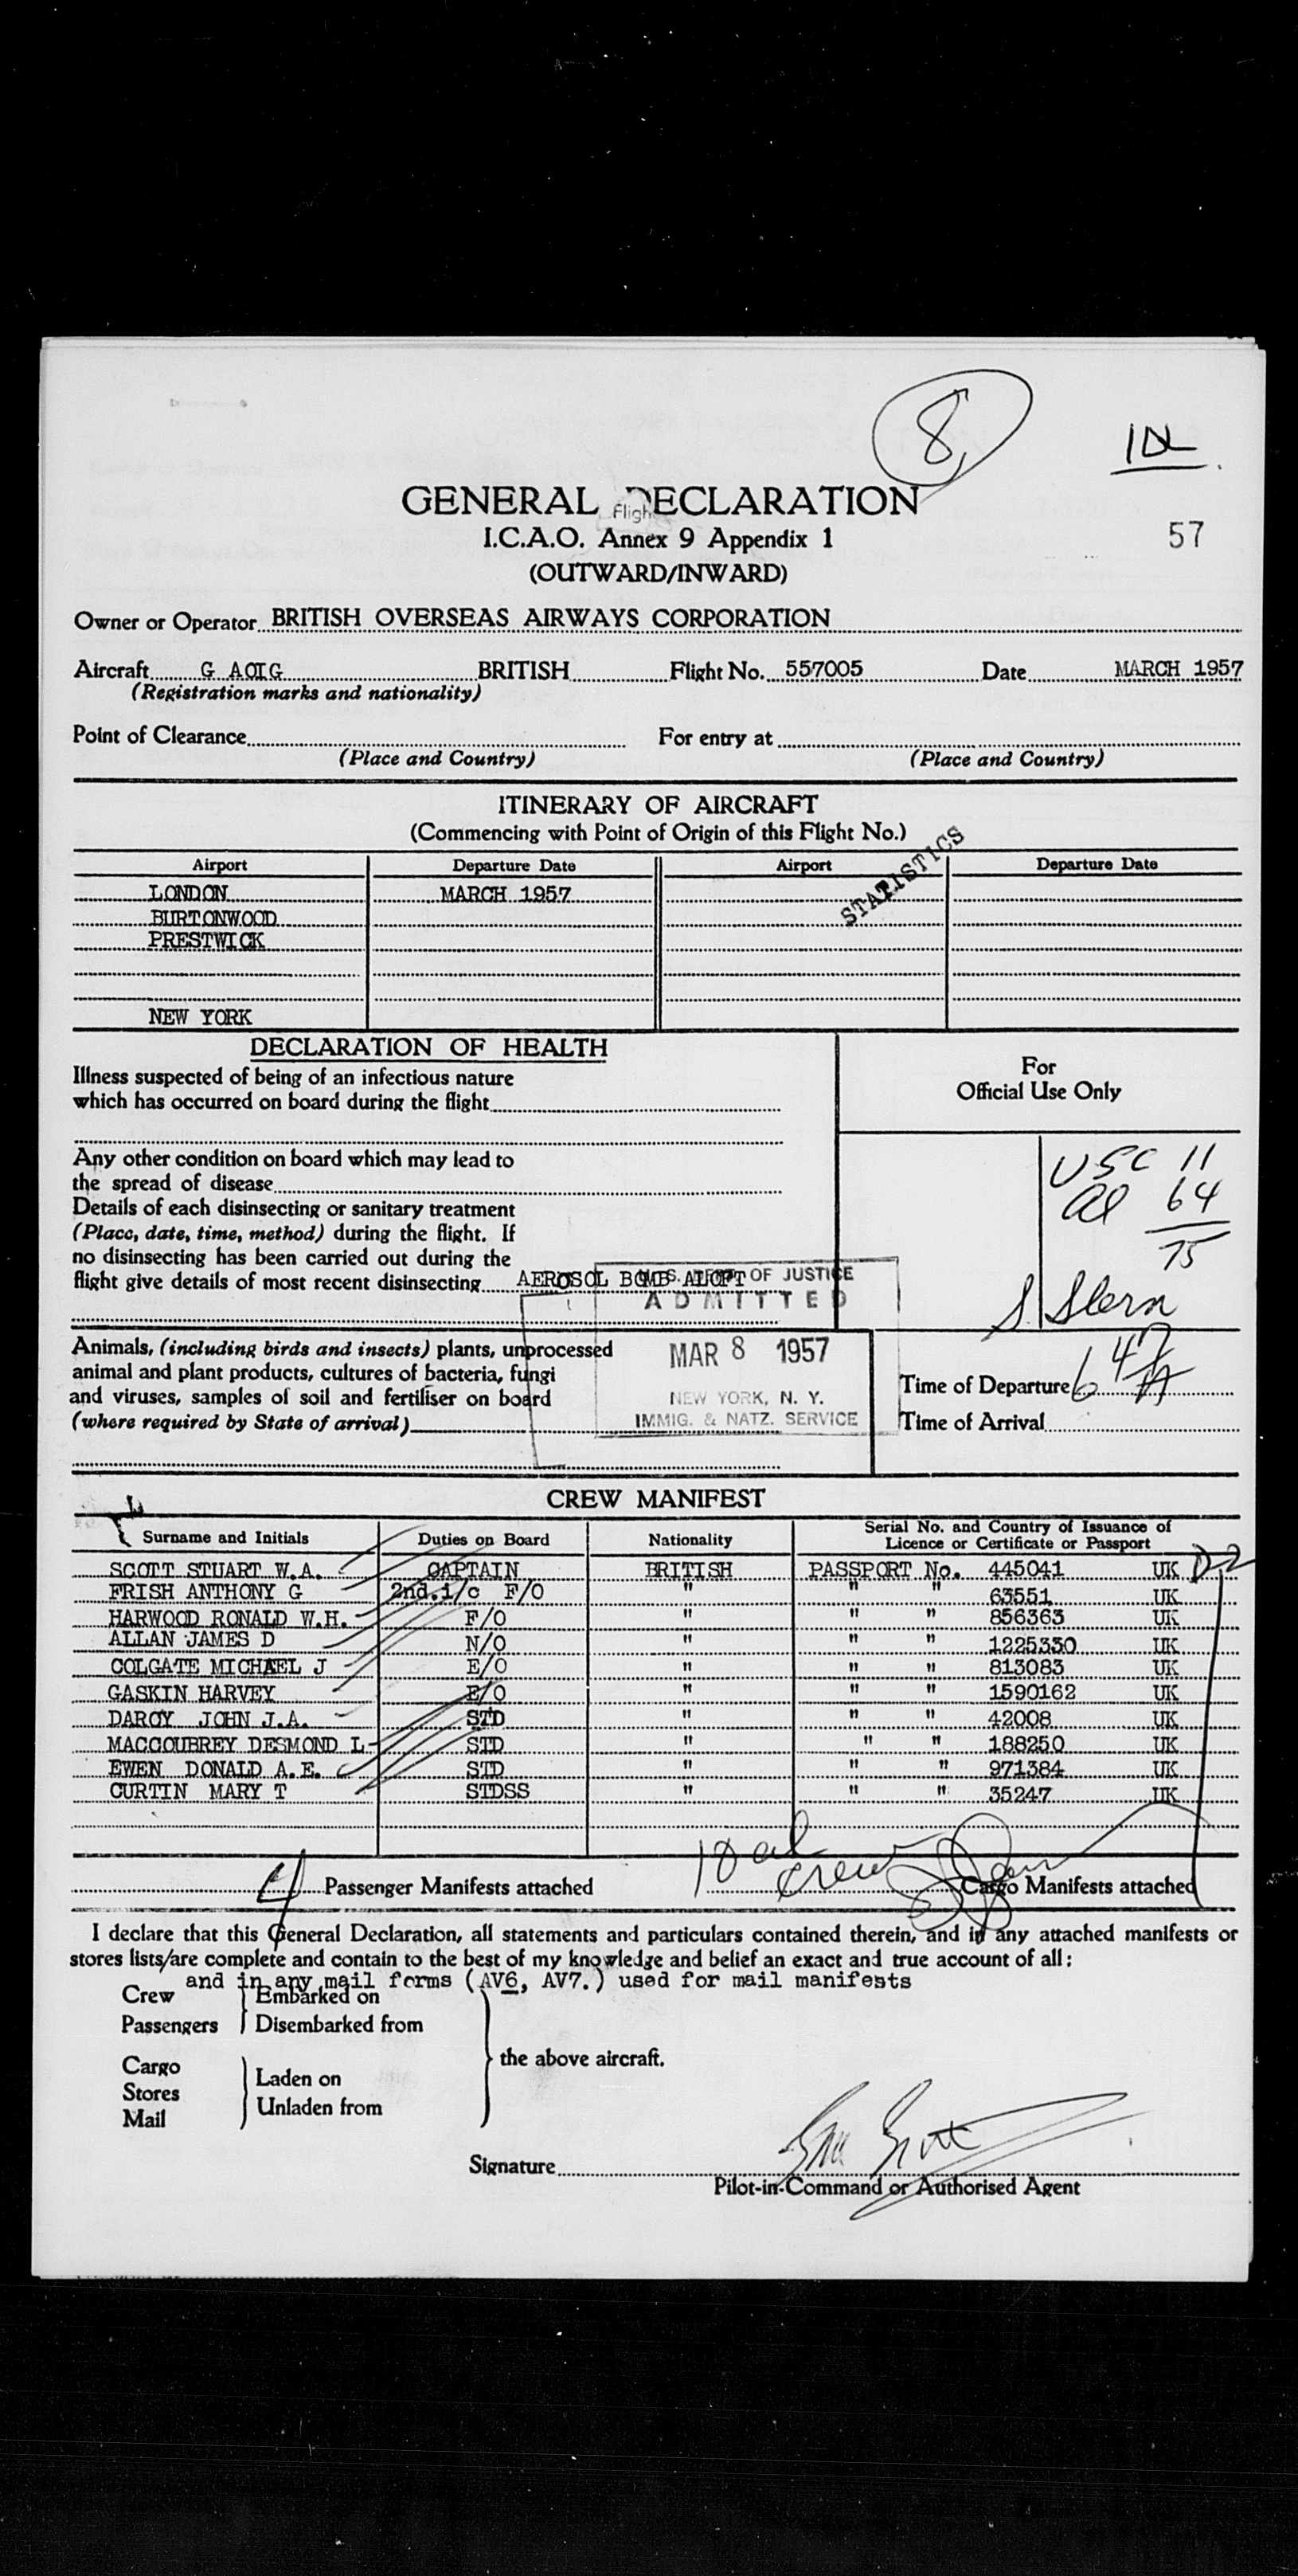 8
57
GENERAL DECLARATION
Flight
I.C.A.O. Annex 9 Appendix 1
(OUTWARD/INWARD)
Owner or Operator BRITISH OVERSEAS AIRWAYS CORPORATION
Aircraft G AOIG BRITISH Flight No. 557005 Date MARCH 1957
(Registration marks and nationality)
Point of Clearance For entry at
(Place and Country) (Place and Country)
ITINERARY OF AIRCRAFT
(Commencing with Point of Origin of this Flight No.)
STATISTICS
Airport Departure Date Airport Departure Date
LONDON MARCH 1957
BURTONWOOD
PRESTWICK
NEW YORK
DECLARATION OF HEALTH
For
Official Use Only
Illness suspected of being of an infectious nature
which has occurred on board during the flight
Any other condition on board which may lead to
the spread of disease
Details of each disinsecting or sanitary treatment
(Place, date, time, method) during the flight. If
no disinsecting has been carried out during the
flight give details of most recent disinsecting AEROSOL BOMB ALOFT
USC 11
al 64
75
S. Stern
U.S. DEPT. OF JUSTICE
ADMITTED
MAR 8 1957
NEW YORK, N. Y.
IMMIG. & NATZ. SERVICE
Animals, (including birds and insects) plants, unprocessed
animal and plant products, cultures of bacteria, fungi
and viruses, samples of soil and fertiliser on board
(where required by State of arrival)
Time of Departure
Time of Arrival
CREW MANIFEST
Surname and Initials Duties on Board Nationality Serial No. and Country of Issuance of Licence or Certificate or Passport
SCOTT STUART W.A. CAPTAIN BRITISH PASSPORT No. 445041 UK
FRISH ANTHONY G 2nd.i/c F/O " " " 63551 UK
HARWOOD RONALD W.H. F/O " " " 856363 UK
ALLAN JAMES D N/O " " " 1225330 UK
COLGATE MICHAEL J E/O " " " 813083 UK
GASKIN HARVEY E/O " " " 1590162 UK
DARCY JOHN J.A. STD " " " 42008 UK
MACCOUBREY DESMOND L STD " " " 188250 UK
EWEN DONALD A.E. STD " " " 971384 UK
CURTIN MARY T STDSS " " " 35247 UK
10 al
crew
4 Passenger Manifests attached Cargo Manifests attached
I declare that this General Declaration, all statements and particulars contained therein, and in any attached manifests or
stores lists/are complete and contain to the best of my knowledge and belief an exact and true account of all:
and in any mail forms (AV6, AV7.) used for mail manifests
Crew Embarked on
Passengers Disembarked from
the above aircraft.
Cargo
Stores Laden on
Mail Unladen from
Signature
Pilot-in-Command or Authorised Agent